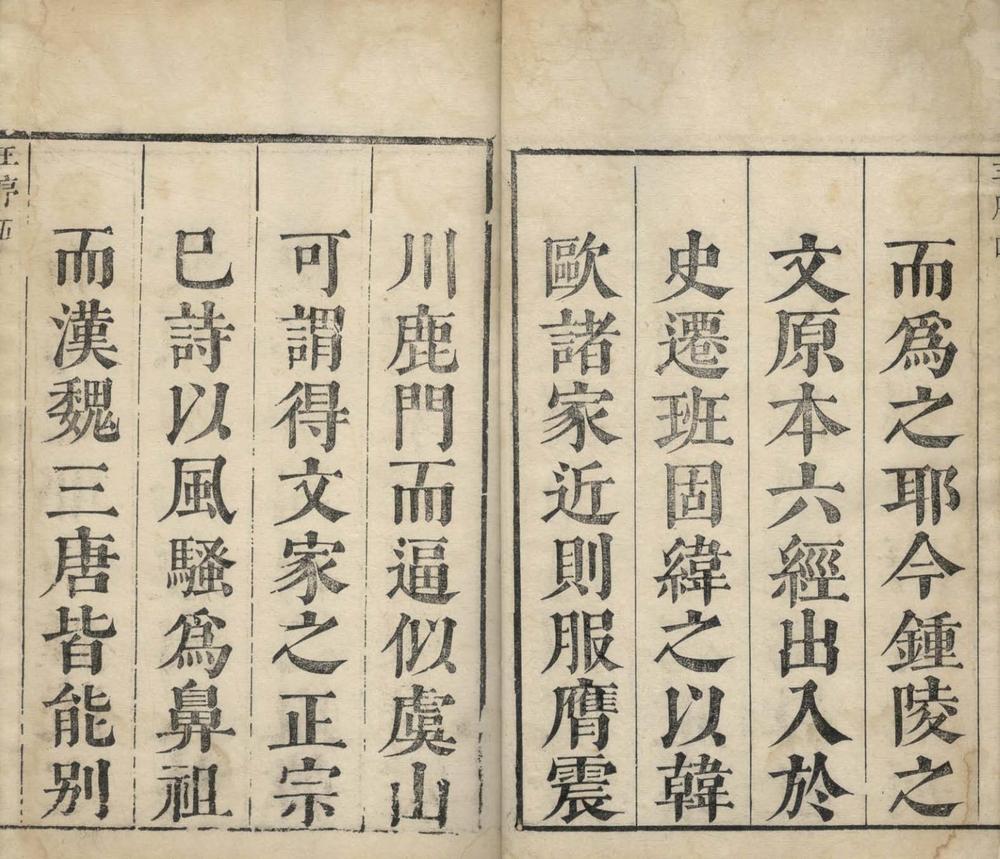 而爲之耶今鍾陵之
文原本六經出入於
史遷班固緯之以韓
歐諸家近則服膺震
川鹿門而逼似虞山
可謂得文家之正宗
巳詩以風騷爲鼻祖
而漢魏三唐皆能别
王序五